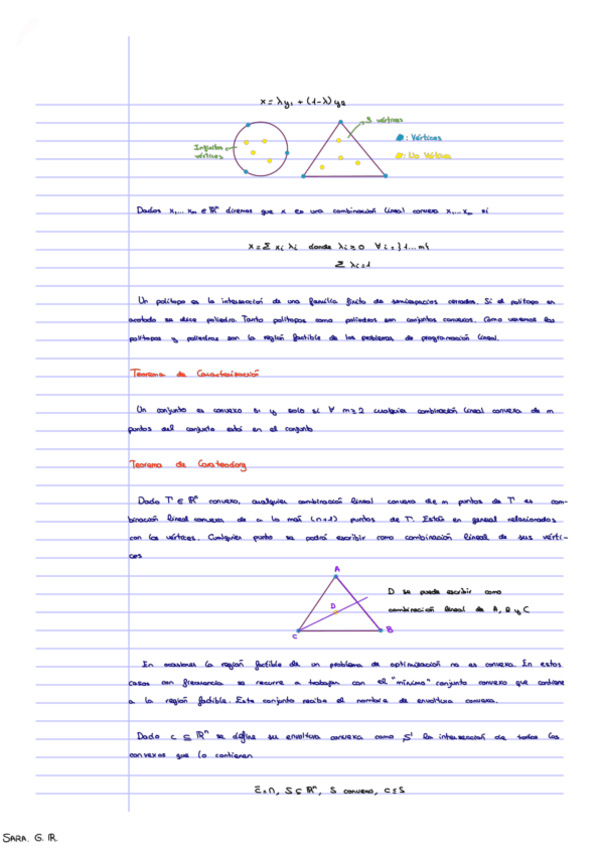 x = λy₁ + (1-λ) y₂
3 vértices
Infinitos vértices
: Vértices
: No Vértices
Dados x₁,...xₘ ∈ ℝⁿ diremos que x es una combinación lineal convexa x₁,...xₘ si
x = Σ xᵢ λᵢ donde λᵢ ≥ 0 ∀ i = }1...m{
Σ λᵢ = 1
Un polítopo es la intersección de una familia finita de semiespacios cerrados. Si el polítopo es
acotado se dice poliedro. Tanto polítopos como poliedros son conjuntos convexos. Como veremos los
polítopos y poliedros son la región factible de los problemas de programación lineal.
Teorema de Caracterización
Un conjunto es convexo si y solo si ∀ m ≥ 2 cualquier combinación lineal convexa de m
puntos del conjunto está en el conjunto
Teorema de
Dado T ∈ ℝⁿ convexo, cualquier combinación lineal convexa de m puntos de T es com-
binación lineal convexa de a lo más (n+1) puntos de T. Están en general relacionados
con los vértices. Cualquier punto se podrá escribir como combinación lineal de sus vérti-
ces
A
D se puede escribir como
combinación lineal de A, B y C
D
C
B
En ocasiones la región factible de un problema de optimización no es convexa. En estos
casos con frecuencia se recurre a trabajar con el "mínimo" conjunto convexo que contiene
a la región factible. Este conjunto recibe el nombre de envoltura convexa.
Dado C ⊆ ℝⁿ se define su envoltura convexa como la intersección de todos los
convexos que lo contienen
S ⊆ ℝⁿ, S convexo, C ⊆ S
SARA. G. R.